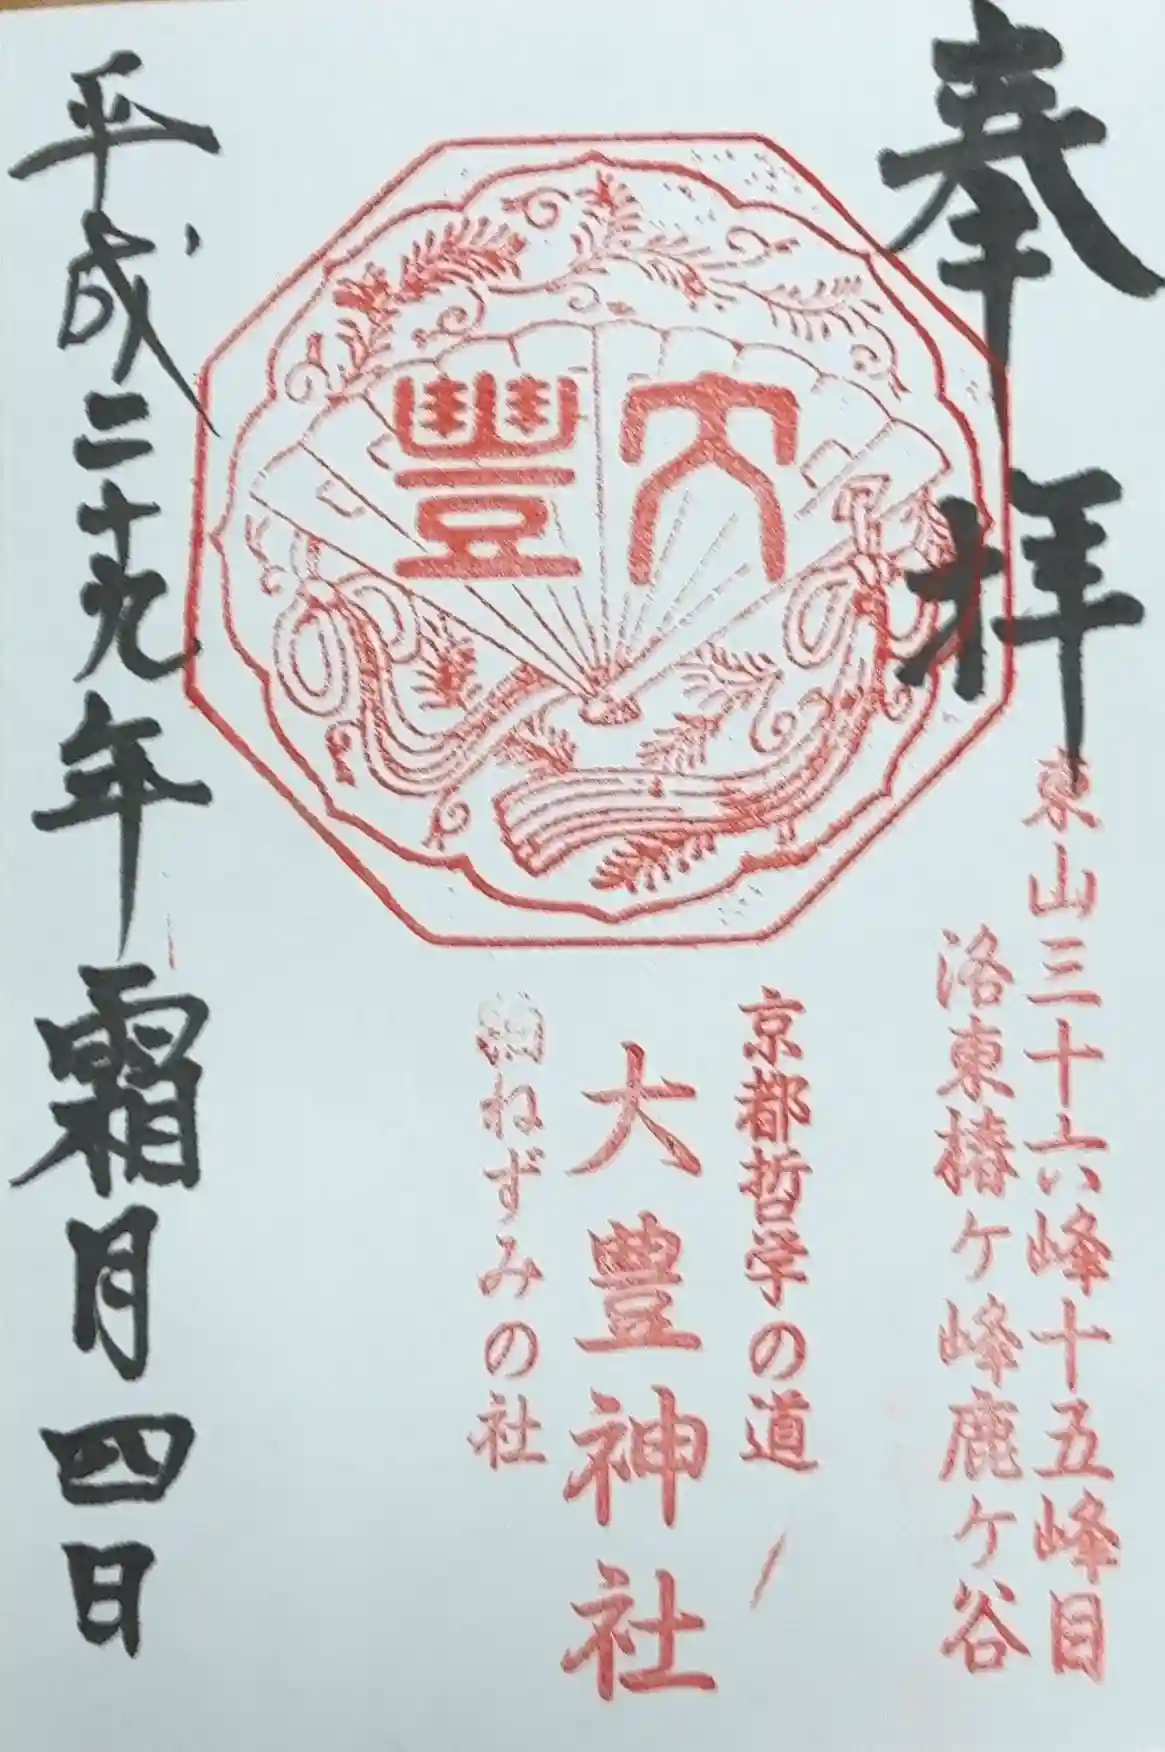 奉拝
東山三十六峰十五峰目
洛東椿ケ峰鹿ケ谷
大豐
京都哲学の道
大豊神社
狛ねずみの社
平成二十九年霜月四日